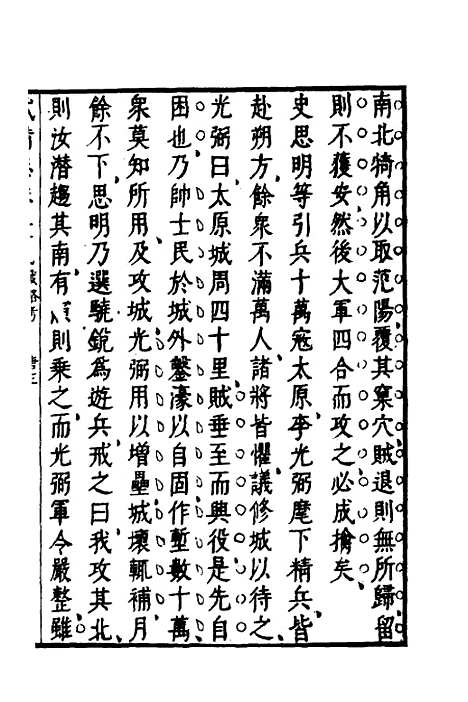 南北犄角以取范陽覆其窠穴賊退則無所歸留
則不獲安然後大軍四合而攻之必成擒矣
史思明等引兵十萬寇太原李光弼麾下精兵皆
赴朔方餘衆不滿萬人諸將皆懼議修城以待之
光弼曰太原城周四十里賊垂至而興役是先自
困也乃帥士民於城外鑿濠以自固作塹數十萬
衆莫知所用及攻城光弼用以增壘城壞輒補月
餘不下思明乃選驍銳為遊兵戒之曰我攻其北
則汝潛趨其南有則乘之而光弼軍令嚴整雖